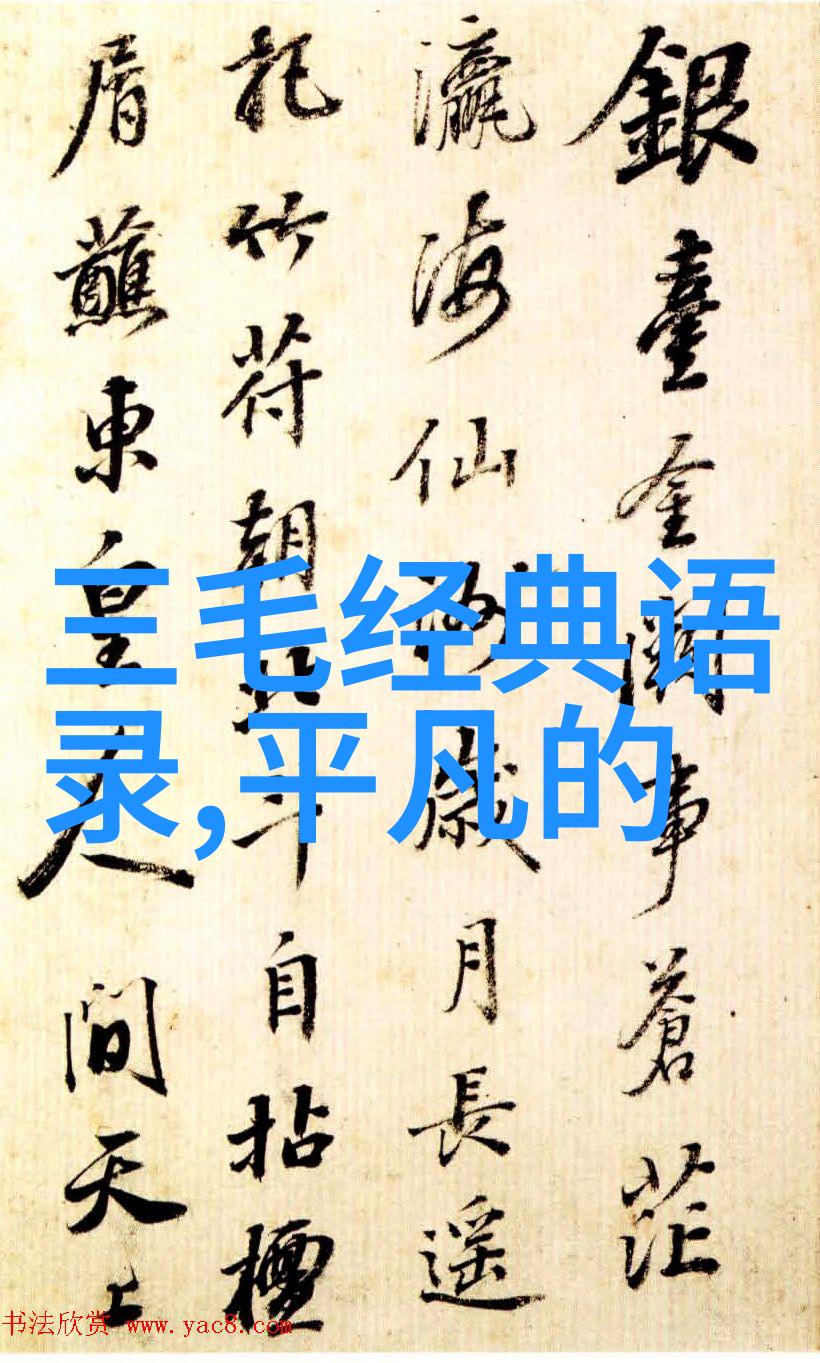 銀臺金闕事蒼茫
瀛海仙歲月長遥
記竹符朝北斗自拈檀
屑蘸東皇人間天上
三毛经典语
录,平凡的
书法欣赏 www.yac8.com